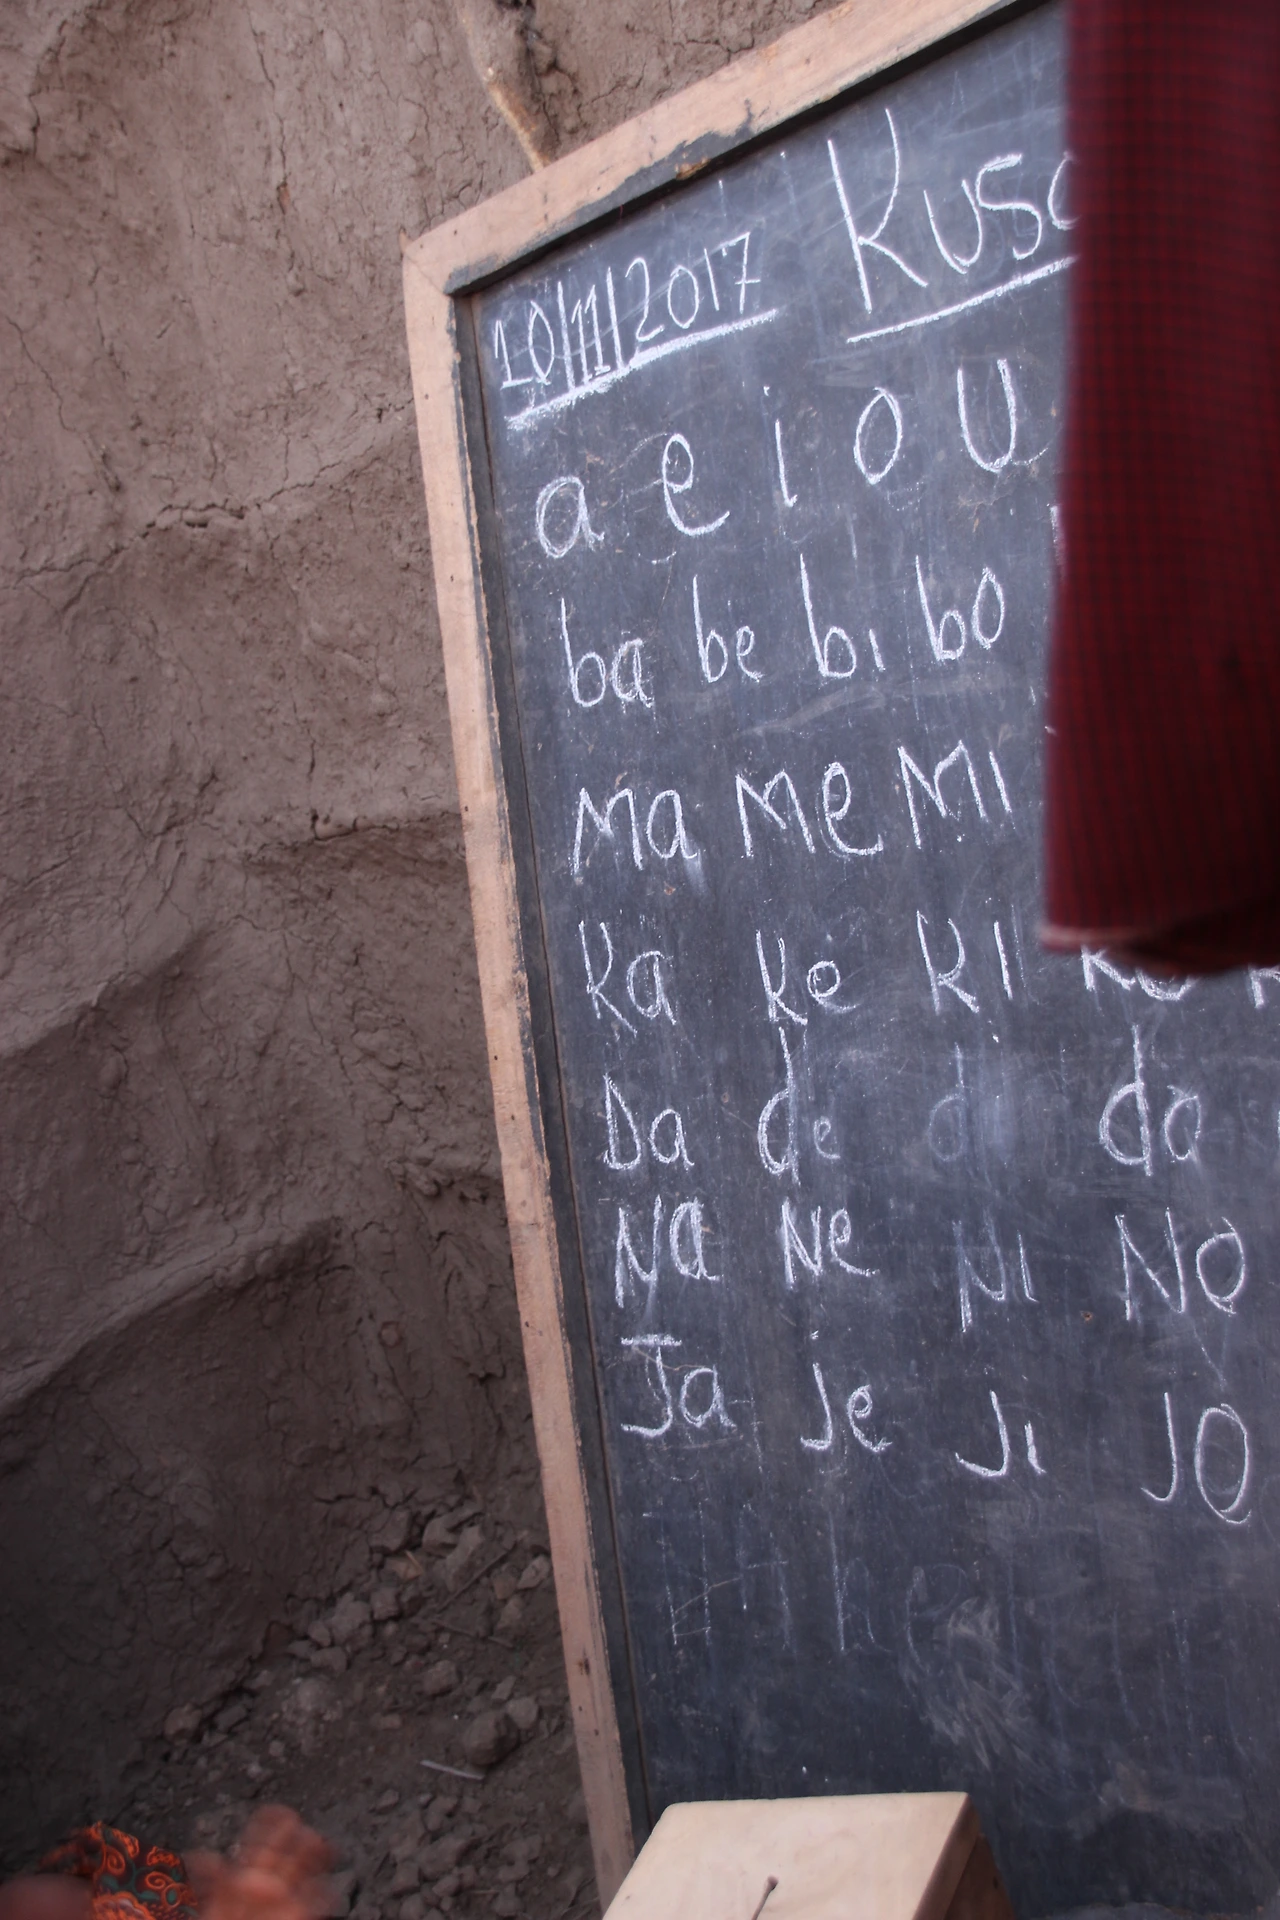 10/11/2017 Kuso
a e i o U
ba be bi bo
Ma Me Mi
Ka Ke Ki Ko K
Da de di do
Na Ne Ni No
Ja je Ji JO